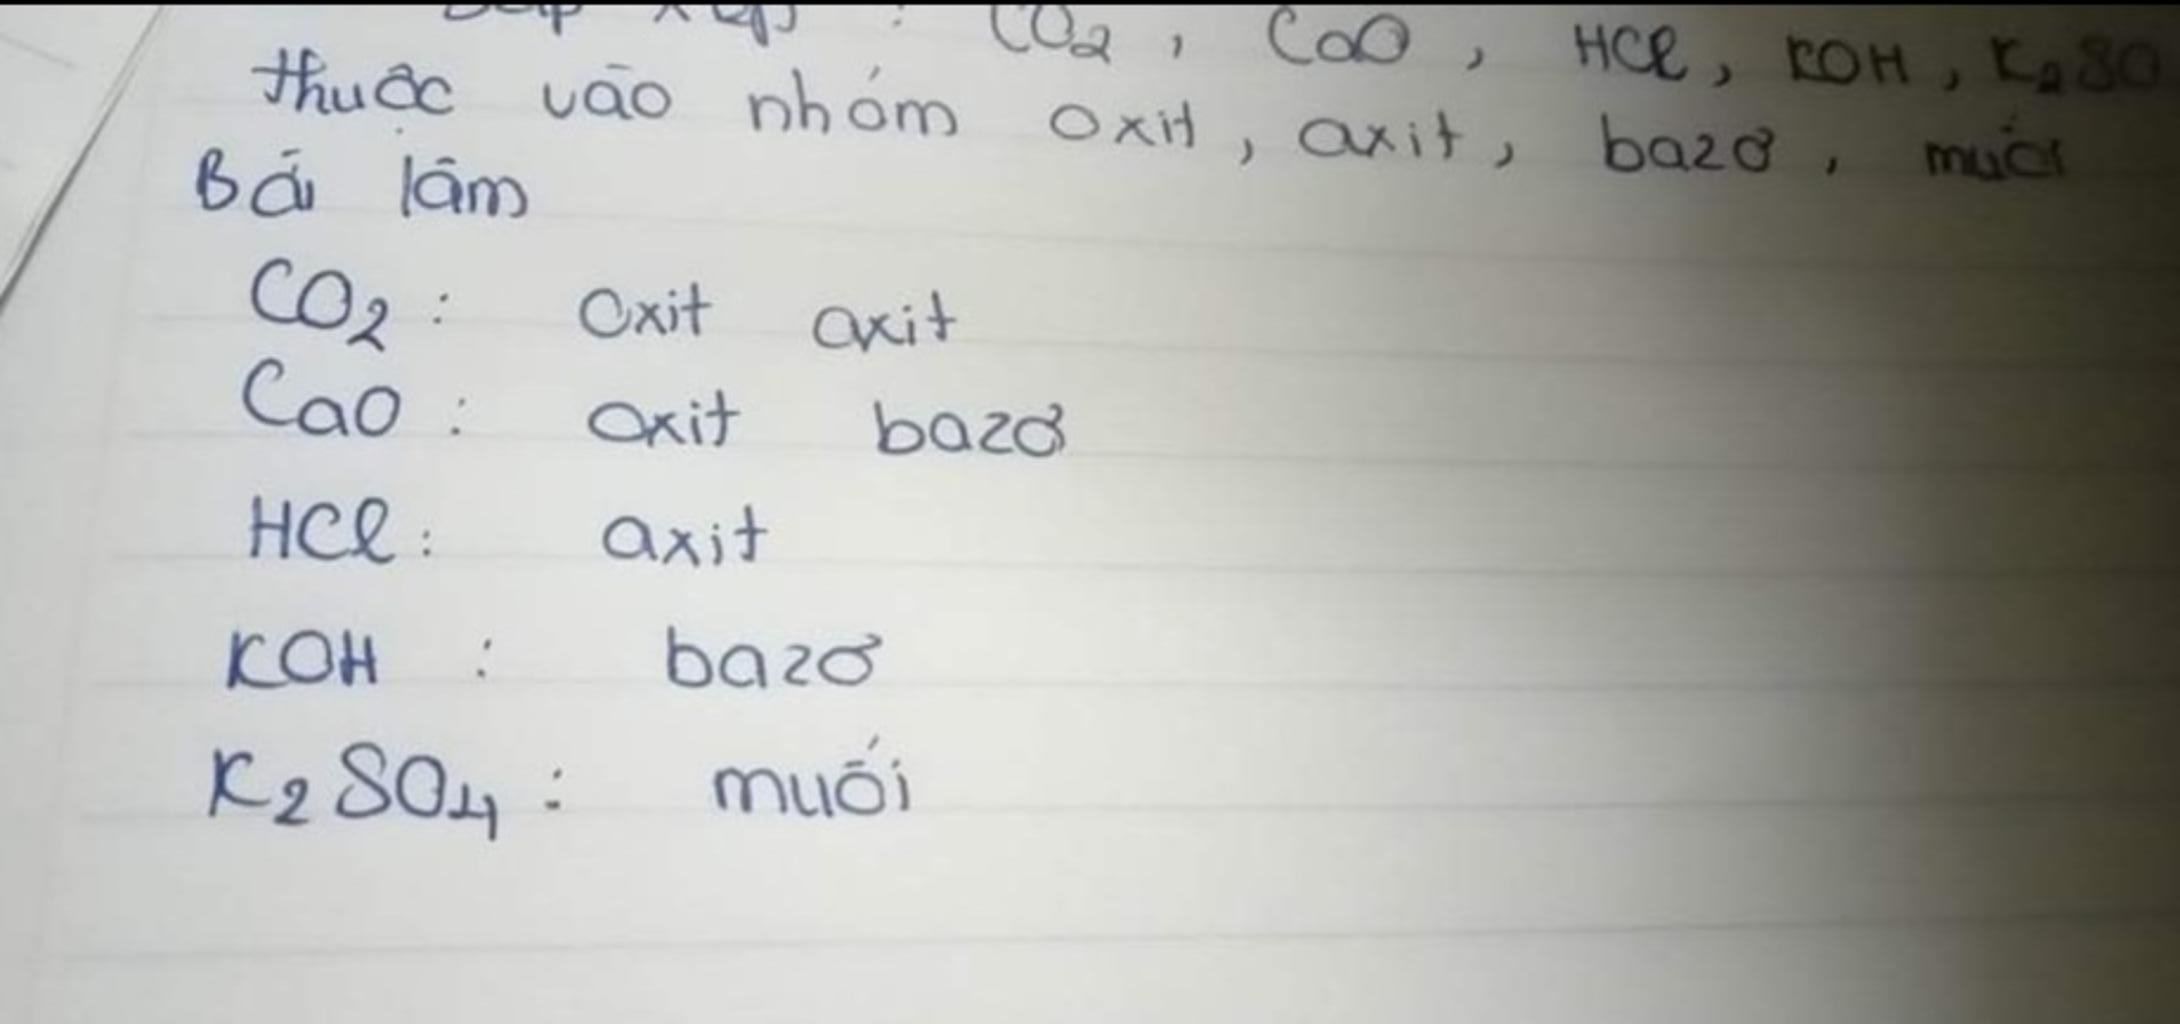 xếp : CO2, CaO, HCl, KOH, K2SO
thuộc vào nhóm oxit, axit, bazơ, muối
Bài làm
CO2 : Oxit axit
CaO : Oxit bazơ
HCl : axit
KOH : bazơ
K2SO4 : muối